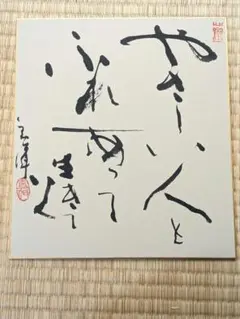 やさしい人と
ふれあって
生きて